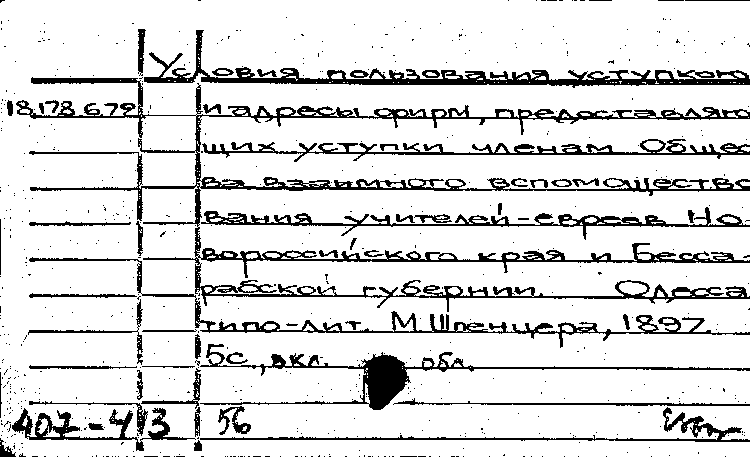 Условия пользования уступкою
18.178.679 и адресы фирм, предоставляю
щих уступки членам Общес
ва взаимного вспомоществo
вания учителей-евреев Но
вороссийского края и Бесса-
рабской губернии. Одесса
типо-лит. М. Шпенцера, 1897.
5с., вкл. обл.
407-4 3 56